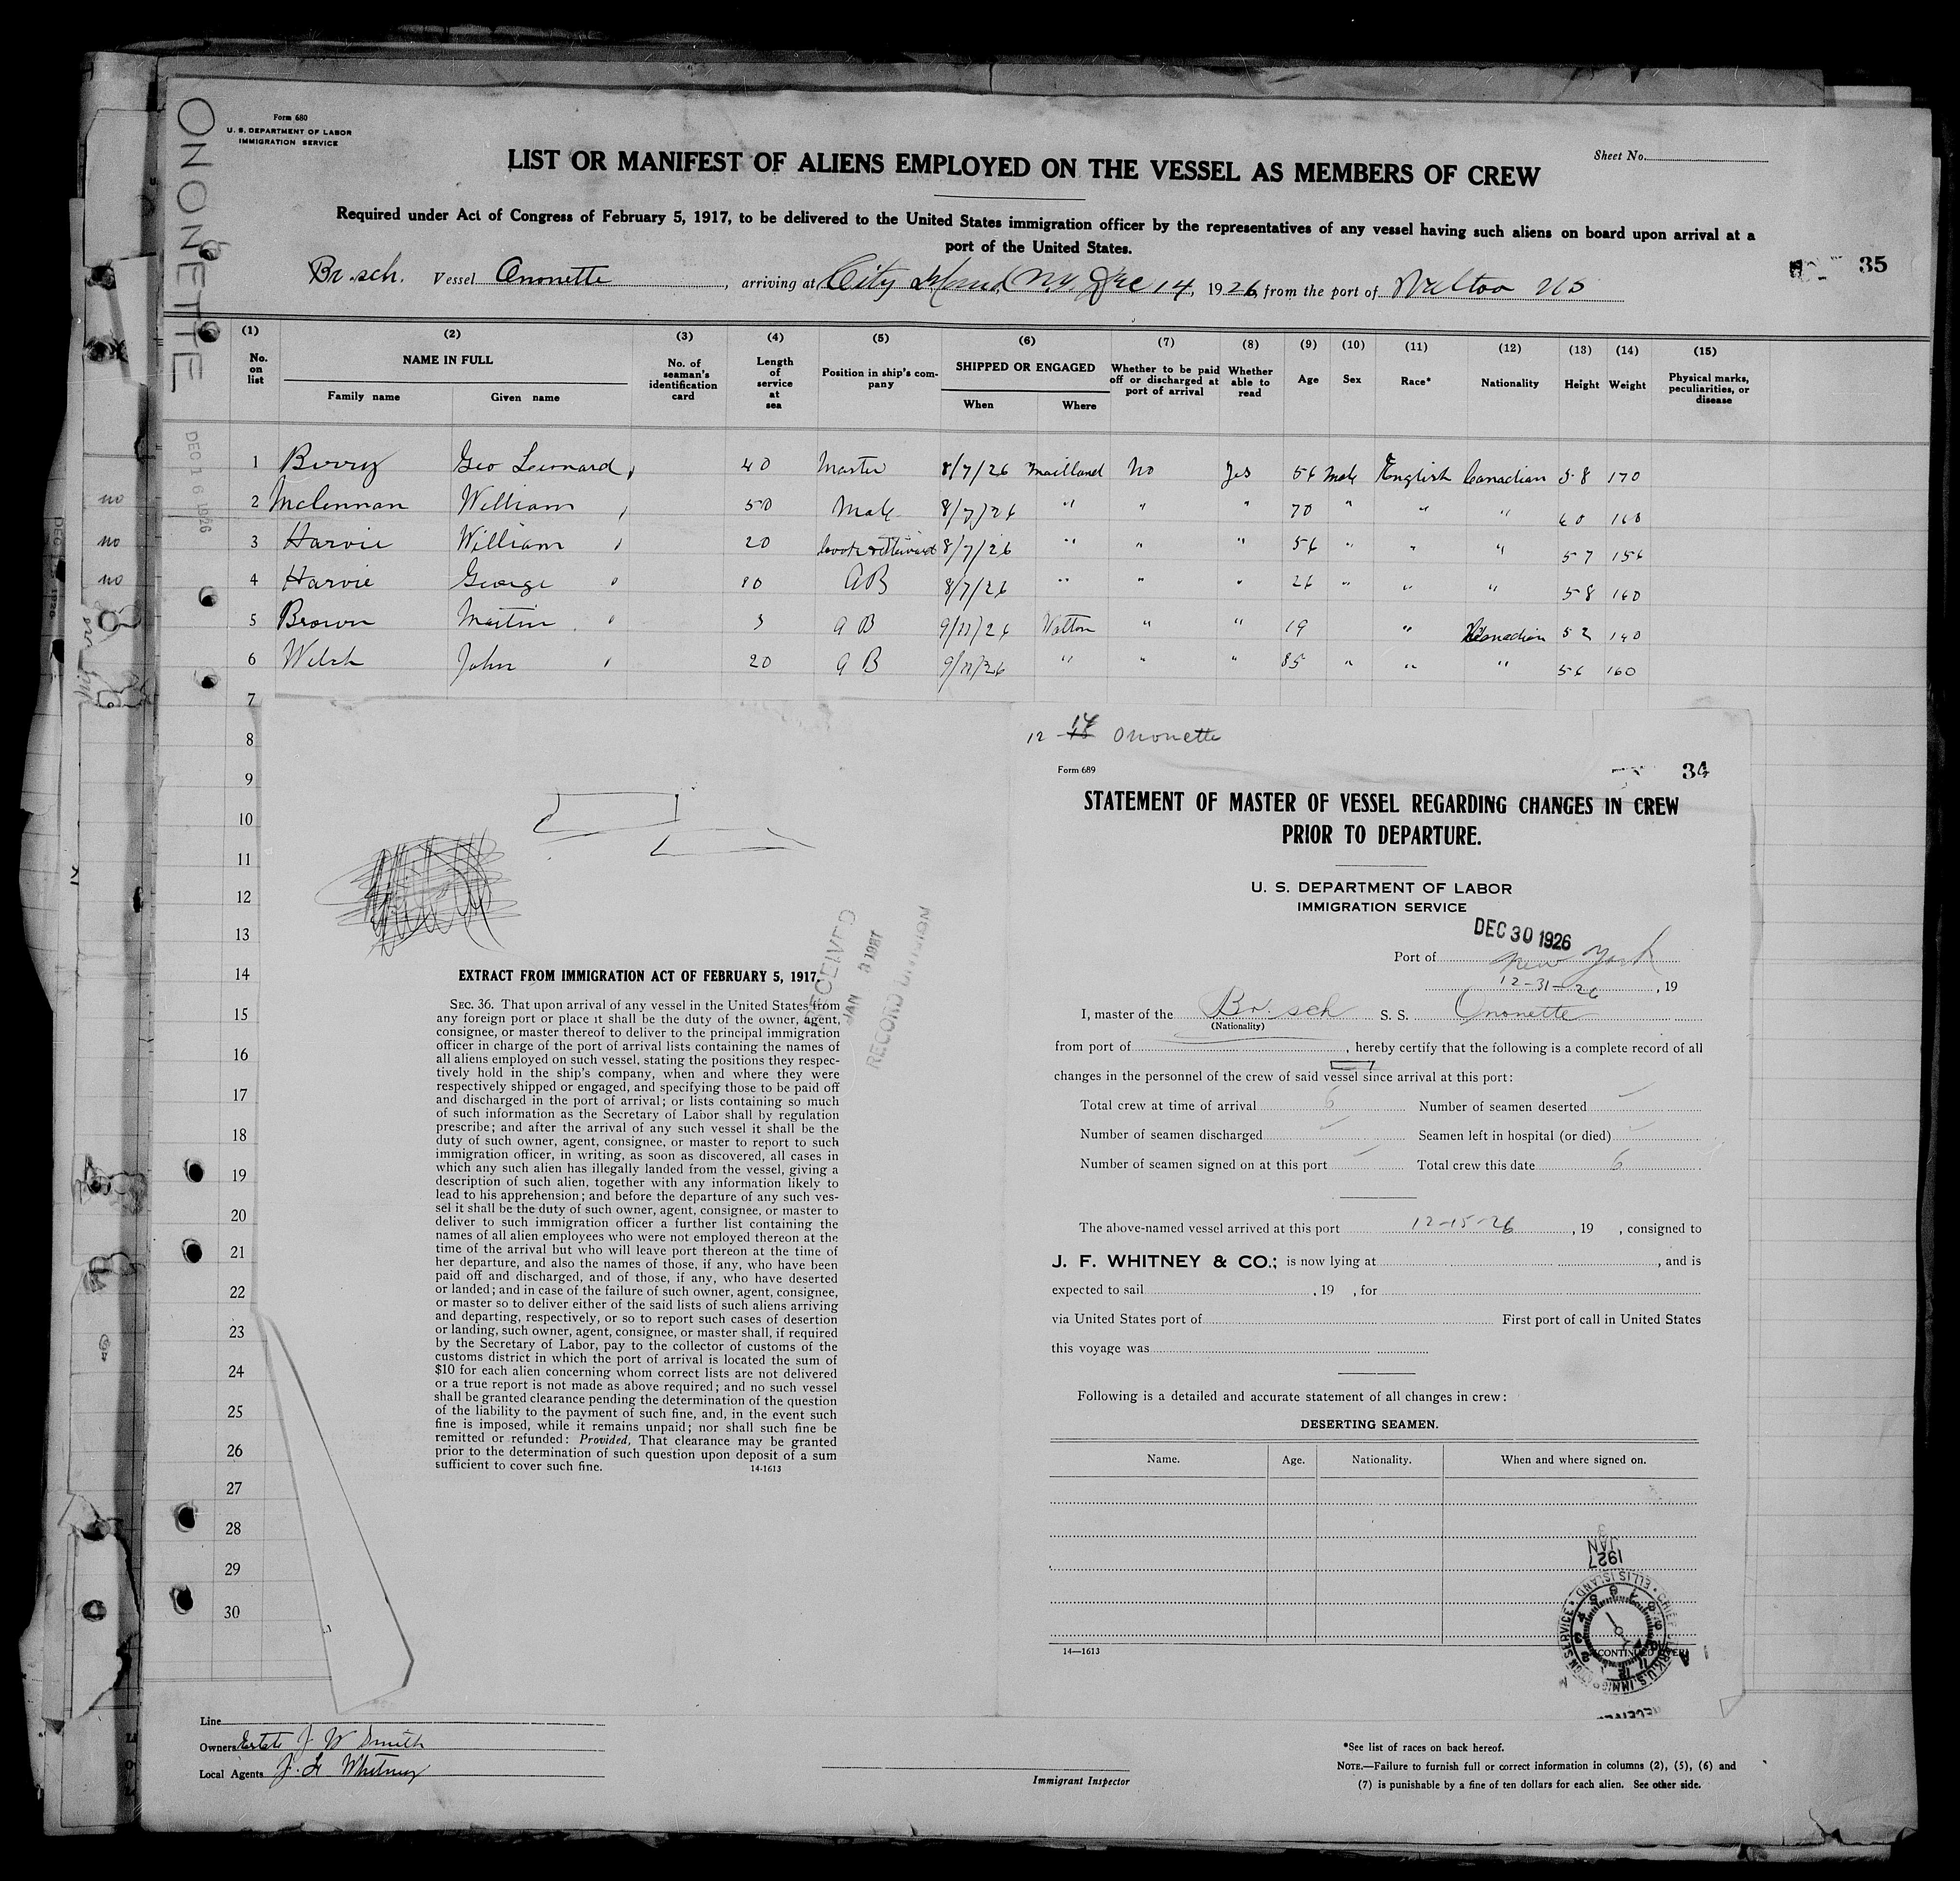 ONONETTE
Form 680
U. S. DEPARTMENT OF LABOR
IMMIGRATION SERVICE
Sheet No.
LIST OR MANIFEST OF ALIENS EMPLOYED ON THE VESSEL AS MEMBERS OF CREW
Required under Act of Congress of February 5, 1917, to be delivered to the United States immigration officer by the representatives of any vessel having such aliens on board upon arrival at a
port of the United States.
35
Br. sch. Vessel Ononette, arriving at City Island N.Y. Dec 14, 1926, from the port of Walton NS
(1) (2) (3) (4) (5) (6) (7) (8) (9) (10) (11) (12) (13) (14) (15)
No. on list
NAME IN FULL
Family name Given name
No. of seaman's identification card
Length of service at sea
Position in ship's company
SHIPPED OR ENGAGED
When Where
Whether to be paid off or discharged at port of arrival
Whether able to read
Age Sex Race* Nationality Height Weight
Physical marks, peculiarities, or disease
DEC 16 1926
1 Berry Geo Leonard 40 Master 8/7/26 Maitland No Yes 54 Male English Canadian 5 8 170
no 2 McLennan William 50 Mate 8/7/26 " " " 70 " " " 6 0 160
no 3 Harvie William 20 Cook & Steward 8/7/26 " " " 56 " " " 5 7 156
no 4 Harvie George 10 AB 8/7/26 " " " 26 " " " 5 8 160
5 Brown Martin 3 AB Walton " " 19 " Canadian 5 2 140
6 Welsh John 20 AB " " " " " " 5 6 160
7
8
9
10
11
12
13
14
15
16
17
18
19
20
21
22
23
24
25
26
27
28
29
30
RECEIVED
JAN 3 1927
RECORD DIVISION
EXTRACT FROM IMMIGRATION ACT OF FEBRUARY 5, 1917.
SEC. 36. That upon arrival of any vessel in the United States from
any foreign port or place it shall be the duty of the owner, agent,
consignee, or master thereof to deliver to the principal immigration
officer in charge of the port of arrival lists containing the names of
all aliens employed on such vessel, stating the positions they respec-
tively hold in the ship's company, when and where they were
respectively shipped or engaged, and specifying those to be paid off
and discharged in the port of arrival; or lists containing so much
of such information as the Secretary of Labor shall by regulation
prescribe; and after the arrival of any such vessel it shall be the
duty of such owner, agent, consignee, or master to report to such
immigration officer, in writing, as soon as discovered, all cases in
which any such alien has illegally landed from the vessel, giving a
description of such alien, together with any information likely to
lead to his apprehension; and before the departure of any such ves-
sel it shall be the duty of such owner, agent, consignee, or master to
deliver to such immigration officer a further list containing the
names of all alien employees who were not employed thereon at the
time of the arrival but who will leave port thereon at the time of
her departure, and also the names of those, if any, who have been
paid off and discharged, and of those, if any, who have deserted
or landed; and in case of the failure of such owner, agent, consignee,
or master so to deliver either of the said lists of such aliens arriving
and departing, respectively, or so to report such cases of desertion
or landing, such owner, agent, consignee, or master shall, if required
by the Secretary of Labor, pay to the collector of customs of the
customs district in which the port of arrival is located the sum of
$10 for each alien concerning whom correct lists are not delivered
or a true report is not made as above required; and no such vessel
shall be granted clearance pending the determination of the question
of the liability to the payment of such fine, and, in the event such
fine is imposed, while it remains unpaid; nor shall such fine be
remitted or refunded: Provided, That clearance may be granted
prior to the determination of such question upon deposit of a sum
sufficient to cover such fine. 14-1613
12 14 Ononette
Form 689
34
STATEMENT OF MASTER OF VESSEL REGARDING CHANGES IN CREW
PRIOR TO DEPARTURE.
U. S. DEPARTMENT OF LABOR
IMMIGRATION SERVICE
DEC 30 1926
Port of New York
12-31-26, 19
I, master of the Br. sch S. S. Ononette
(Nationality)
from port of, hereby certify that the following is a complete record of all
changes in the personnel of the crew of said vessel since arrival at this port:
Total crew at time of arrival 6 Number of seamen deserted
Number of seamen discharged Seamen left in hospital (or died)
Number of seamen signed on at this port Total crew this date 6
The above-named vessel arrived at this port 12-15-26, 19 , consigned to
J. F. WHITNEY & CO.; is now lying at, and is
expected to sail, 19 , for
via United States port of First port of call in United States
this voyage was
Following is a detailed and accurate statement of all changes in crew:
DESERTING SEAMEN.
Name. Age. Nationality. When and where signed on.
JAN 3
1927
14—1613
Line
Owners Estate J W Smith
Local Agents J. F. Whitney
Immigrant Inspector
*See list of races on back hereof.
NOTE.—Failure to furnish full or correct information in columns (2), (5), (6) and
(7) is punishable by a fine of ten dollars for each alien. See other side.